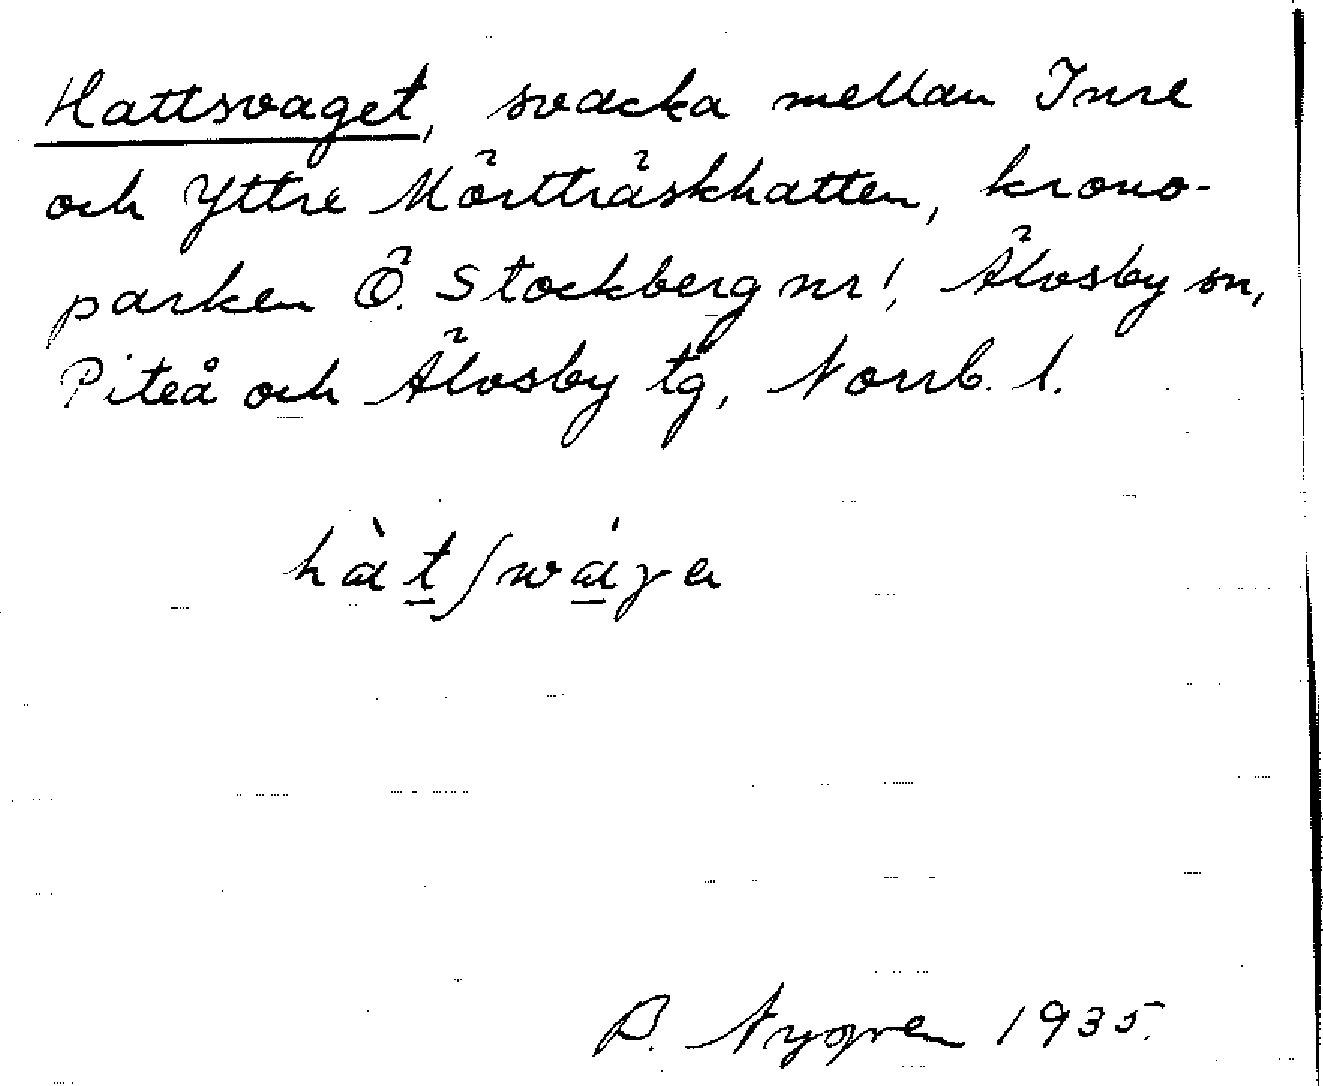 Hattsvaget, svacka mellan Inre
och Yttre Mörtträskhatten, krono-
parken Ö. Stockberg nr 1, Älvsby sn,
Piteå och Älvsby tg, Norrb. l.
hàtʃwáγa
B. Nygren 1935.